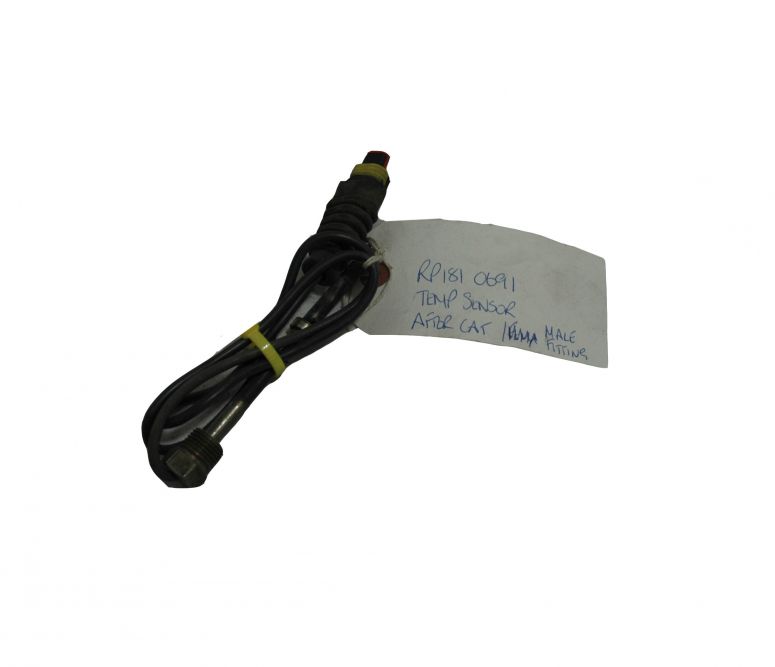 RP181 0691
TEMP SENSOR
AFTER CAT / MALE
FITTING